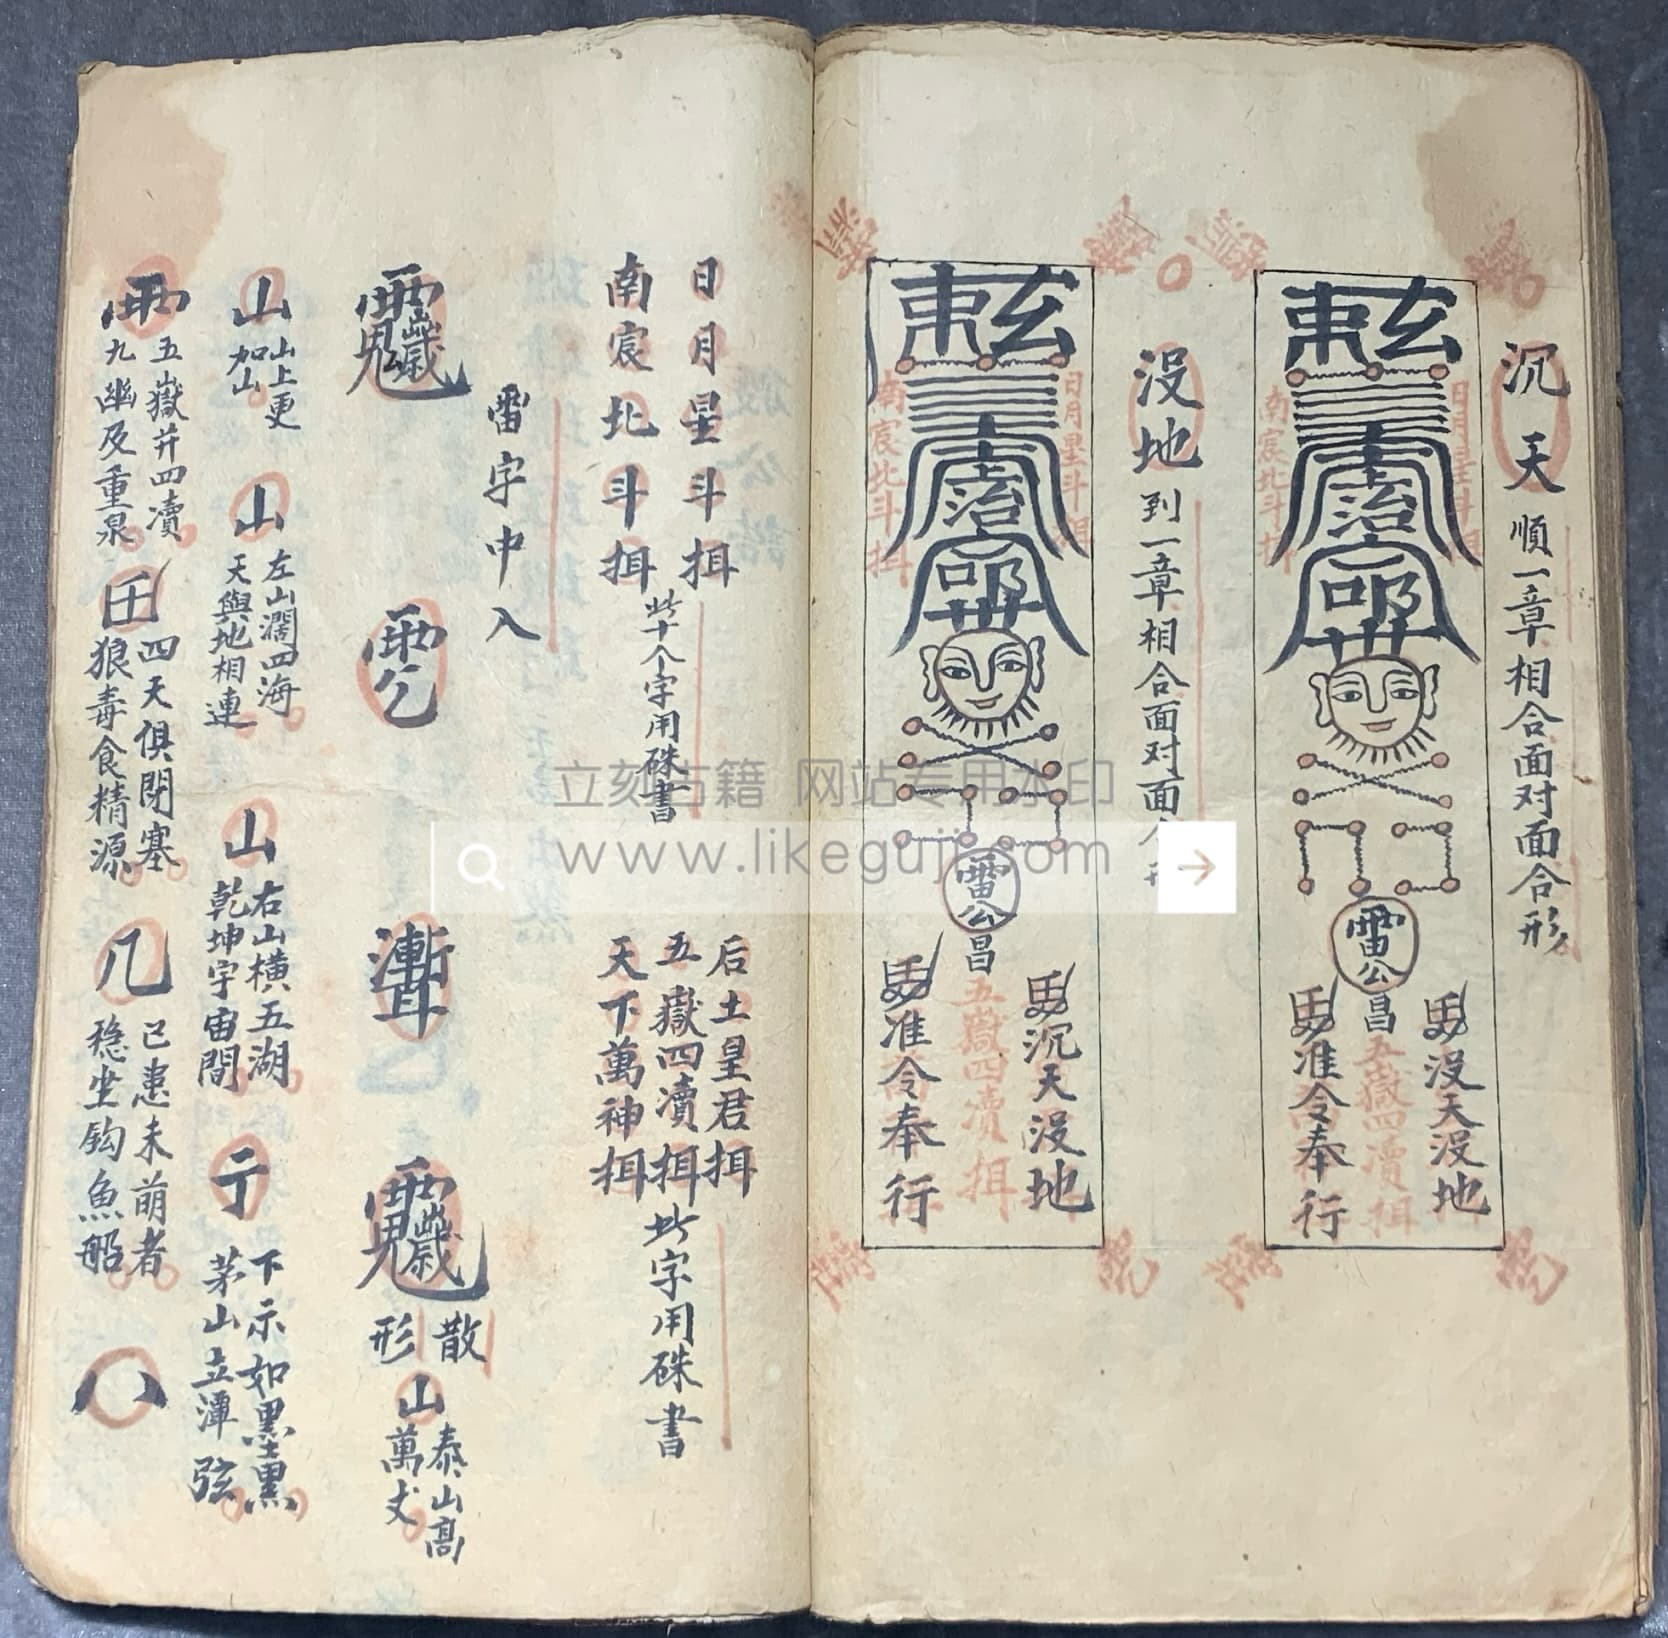 沉天 順一章相合面对面合形
日月星斗
南宸北斗
治
雷公
昌
五嶽四瀆揖
没天没地
准令奉行
没地 到一章相合面对面合形
日月星斗揖
南宸北斗揖
治
雷公
昌
五嶽四瀆揖
沉天没地
准令奉行
日月星斗揖
南宸北斗揖
此十个字用硃書
后土皇君揖
五嶽四瀆揖
天下萬神揖
此字用硃書
雷字中入
散形
山 泰山高萬丈
山 山上更加山
山 左山濶四海天與地相連
山 右山橫五湖乾坤宇宙間
亍 下示如墨黑茅山立潭弦
雨 五嶽并四瀆九幽及重泉
四天俱閉塞狼毒食精源
几 已患未萌者穏坐鈎魚船
立刻古籍 网站专用水印
www.likeguji.com